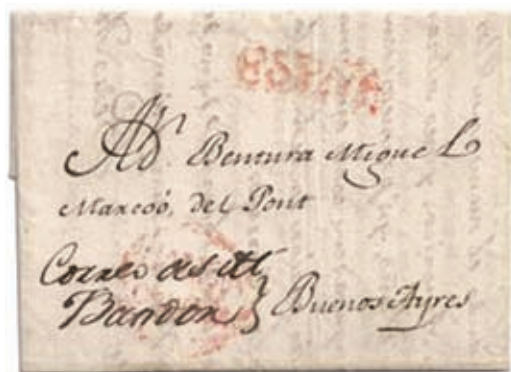 ESPAÑA
A D.ⁿ Bentura Miguel
Marcó, del Pont
Correo del
Buenos Ayres